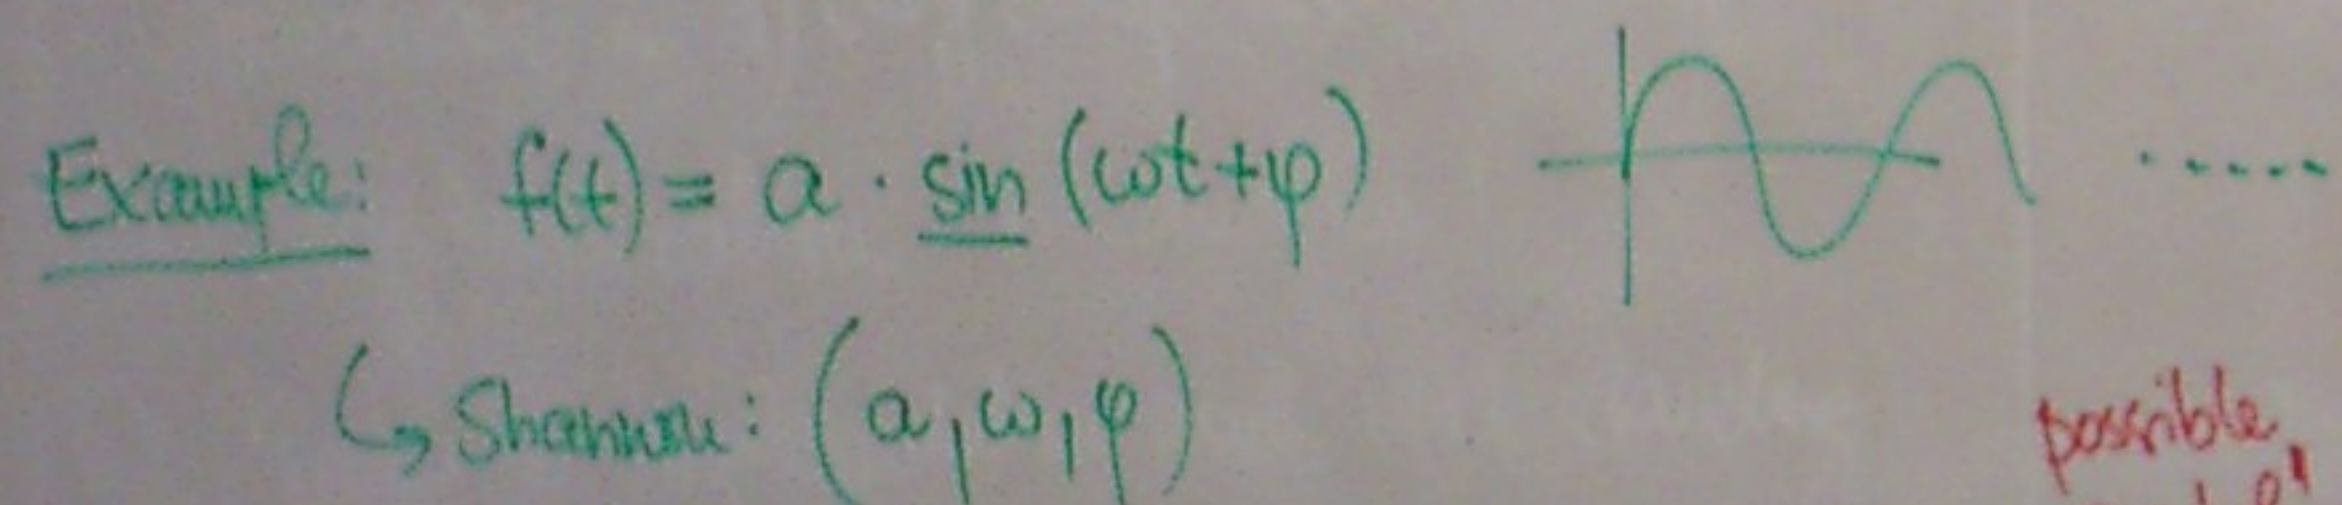 Example: f(t) = a · sin (ωt+φ) .....
↳ Shannon: (a, ω, φ)
possible